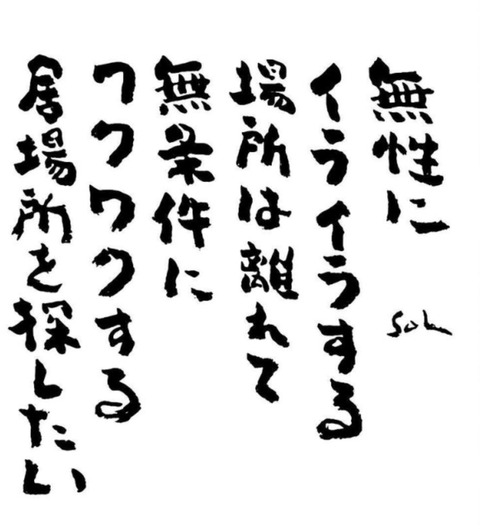 無性に
イライラする
場所は離れて
無条件に
ワクワクする
居場所を探したい